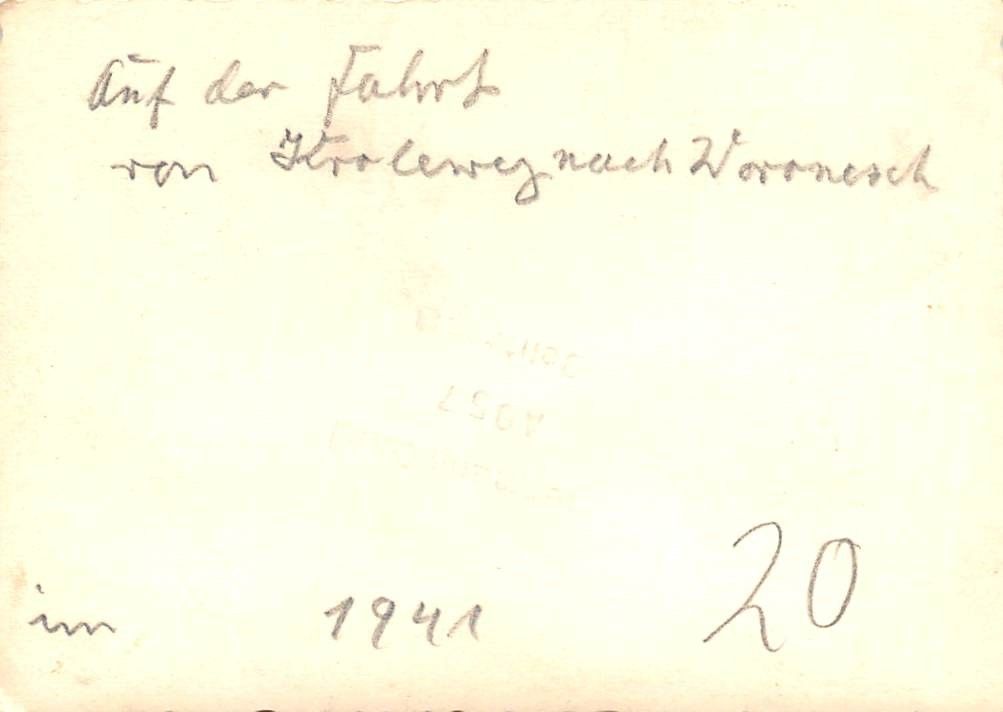 Auf der Fahrt
von Krolewez nach Woronesch
im 1941
20